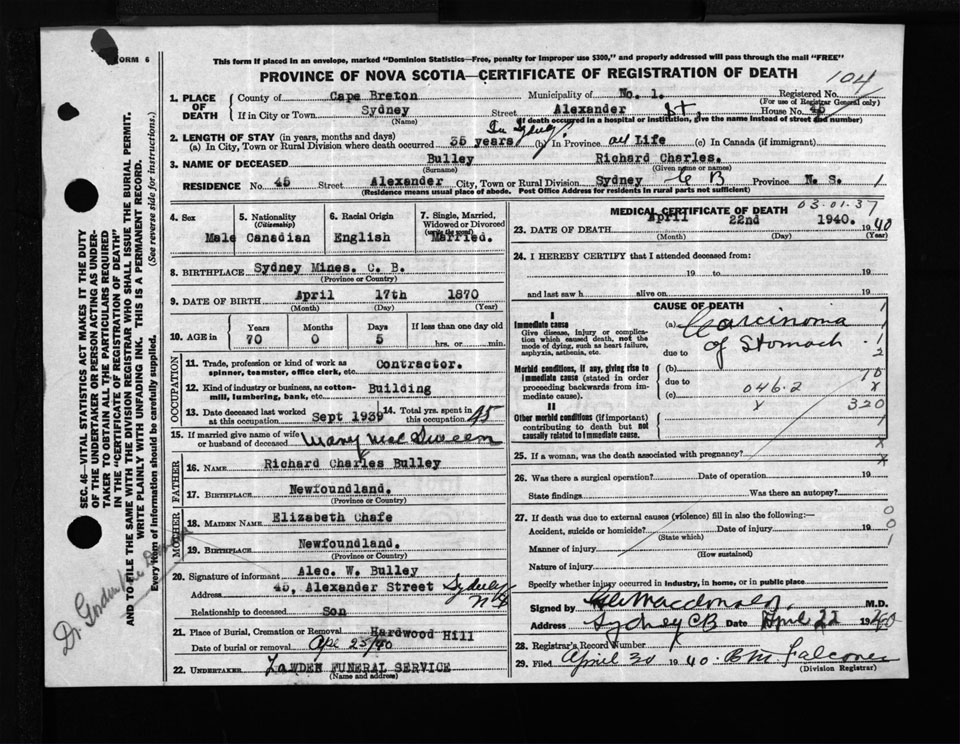 FORM 6
This form if placed in an envelope, marked "Dominion Statistics—Free, penalty for improper use $300," and properly addressed will pass through the mail "FREE"
PROVINCE OF NOVA SCOTIA—CERTIFICATE OF REGISTRATION OF DEATH
104
1. PLACE OF DEATH
County of Cape Breton Municipality of No. 1. Registered No.
(For use of Registrar General only)
If in City or Town Sydney Street Alexander St, House No. 45
(Name) (If death occurred in a hospital or institution, give the name instead of street and number)
2. LENGTH OF STAY (in years, months and days)
(a) In City, Town or Rural Division where death occurred 35 years (b) In Province all Life (c) In Canada (if immigrant)
3. NAME OF DECEASED Bulley Richard Charles.
(Surname) (Given name or names)
RESIDENCE No. 45 Street Alexander City, Town or Rural Division Sydney C B Province N. S. 1
(Residence means usual place of abode. Post Office Address for residents in rural parts not sufficient)
4. Sex 5. Nationality (Citizenship) 6. Racial Origin 7. Single, Married, Widowed or Divorced
Male Canadian English Married.
8. BIRTHPLACE Sydney Mines. C. B.
(Province or Country)
9. DATE OF BIRTH April 17th 1870
(Month) (Day) (Year)
10. AGE in Years Months Days If less than one day old
70 0 5 hrs. or min.
OCCUPATION
11. Trade, profession or kind of work as spinner, teamster, office clerk, etc. Contractor.
12. Kind of industry or business, as cotton-mill, lumbering, bank, etc. Building
13. Date deceased last worked at this occupation Sept 1939 14. Total yrs. spent in this occupation 45
15. If married give name of wife or husband of deceased Mary MacSween
FATHER
16. NAME Richard Charles Bulley
17. BIRTHPLACE Newfoundland.
(Province or Country)
MOTHER
18. MAIDEN NAME Elizabeth Chafe
19. BIRTHPLACE Newfoundland.
(Province or Country)
20. Signature of informant Alec. W. Bulley
Address 45, Alexander Street Sydney NS
Relationship to deceased Son
21. Place of Burial, Cremation or Removal Hardwood Hill
Date of burial or removal Apr 25/40
22. UNDERTAKER Lawden FUNERAL SERVICE
(Name and address)
03.01.37
MEDICAL CERTIFICATE OF DEATH
23. DATE OF DEATH April 22nd 1940. 1940
(Month) (Day) (Year)
24. I HEREBY CERTIFY that I attended deceased from:
19 to 19
and last saw h alive on 19
CAUSE OF DEATH
I
Immediate cause
Give disease, injury or complication which caused death, not the mode of dying, such as heart failure, asphyxia, asthenia, etc.
(a) Carcinoma
of Stomach
due to
Morbid conditions, if any, giving rise to immediate cause (stated in order proceeding backwards from immediate cause).
(b)
due to
(c)
046.2
320
II
Other morbid conditions (if important) contributing to death but not causally related to immediate cause.
25. If a woman, was the death associated with pregnancy?
26. Was there a surgical operation? Date of operation 19
State findings Was there an autopsy?
27. If death was due to external causes (violence) fill in also the following:—
Accident, suicide or homicide? Date of injury 19
(State which)
Manner of injury
(How sustained)
Nature of injury
Specify whether injury occurred in industry, in home, or in public place
Signed by Macdonald M.D.
Address Sydney CB Date April 22 1940
28. Registrar's Record Number
29. Filed April 30 1940. B M Falconer
(Division Registrar)
SEC. 46—VITAL STATISTICS ACT MAKES IT THE DUTY
OF THE UNDERTAKER OR PERSON ACTING AS UNDER-
TAKER TO OBTAIN ALL THE PARTICULARS REQUIRED
IN THE "CERTIFICATE OF REGISTRATION OF DEATH"
AND TO FILE THE SAME WITH THE DIVISION REGISTRAR WHO SHALL ISSUE THE BURIAL PERMIT.
WRITE PLAINLY WITH UNFADING INK. THIS IS A PERMANENT RECORD.
Every item of Information should be carefully supplied. (See reverse side for instructions.)
Dr Gordon